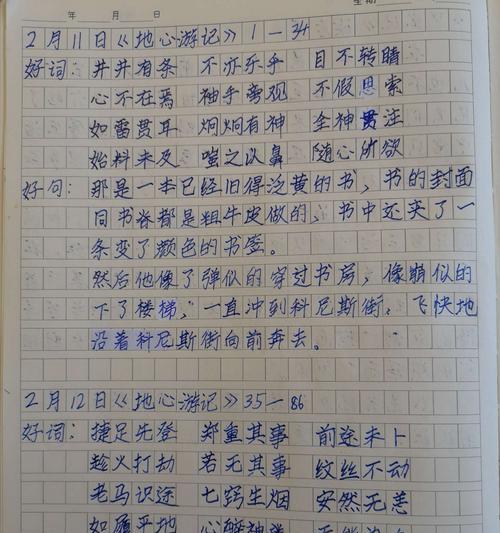 年 月 日 星期
2月11日《地心游记》1—34
好词：井井有条 不亦乐乎 目不转睛
心不在焉 袖手旁观 不假思索
如雷贯耳 炯炯有神 全神贯注
始料未及 嗤之以鼻 随心所欲
好句：那是一本已经旧得泛黄的书，书的封面
同书脊都是粗牛皮做的，书中还夹了一
条变了颜色的书签。
然后他像子弹似的穿过书房，像崩似的
下了楼梯，一直冲到科尼斯街，飞快地
沿着科尼斯街向前奔去。
2月12日《地心游记》35—86
好词：捷足先登 郑重其事 前途未卜
趁火打劫 若无其事 纹丝不动
老马识途 七窍生烟 安然无恙
如履平地